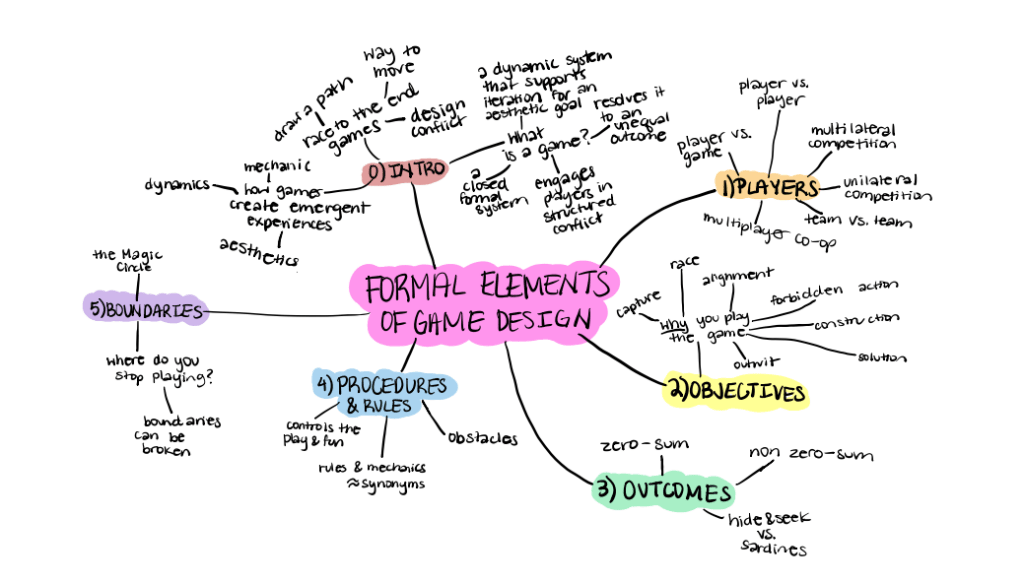 FORMAL ELEMENTS
OF GAME DESIGN
0) INTRO
race to the end
games
draw a path
way to
move
design
conflict
what
is a game?
a dynamic system
that supports
iteration for an
aesthetic goal
resolves it
to an
unequal
outcome
a
closed
formal
system
engages
players in
structured
conflict
how games
create emergent
experiences
mechanic
dynamics
aesthetics
1) PLAYERS
player vs.
game
player vs.
player
multilateral
competition
unilateral
competition
team vs. team
multiplayer co-op
2) OBJECTIVES
why you play
the game
capture
race
alignment
forbidden action
construction
solution
outwit
3) OUTCOMES
zero-sum
non zero-sum
hide & seek
vs.
sardines
4) PROCEDURES
& RULES
controls the
play & fun
rules & mechanics
≈ synonyms
obstacles
5) BOUNDARIES
the Magic
Circle
where do you
stop playing?
boundaries
can be
broken